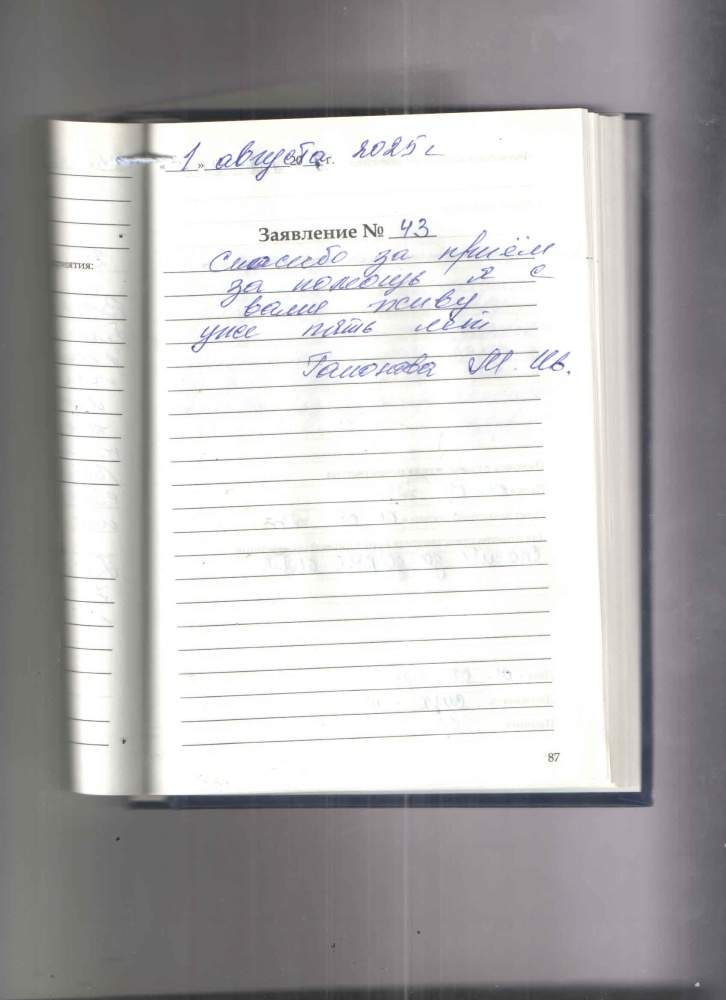 « 1 » августа 20 г. 2025 г
Заявление № 43
Спасибо за приём
за помощь я с
вами живу
уже пять лет
М. Ив.
87